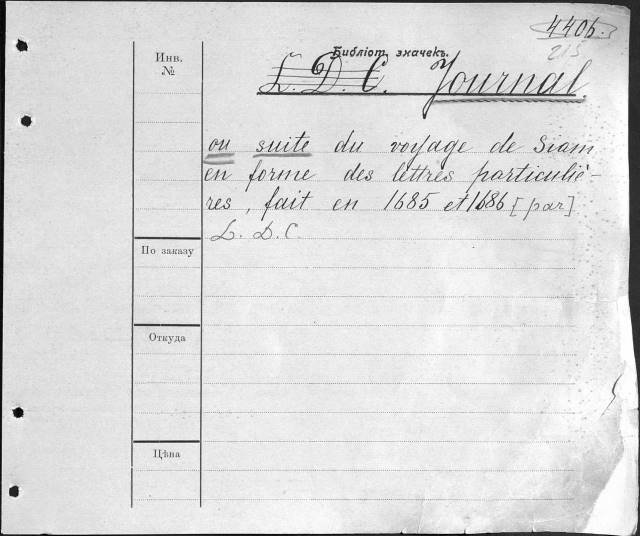 4406.
213
Библіот. значекъ.
Инв.
№
L. D. C. Journal.
ou suite du voyage de Siam
en forme des lettres particuliè-
res, fait en 1685 et 1686 [par]
L. D. C.
По заказу
Откуда
Цѣна